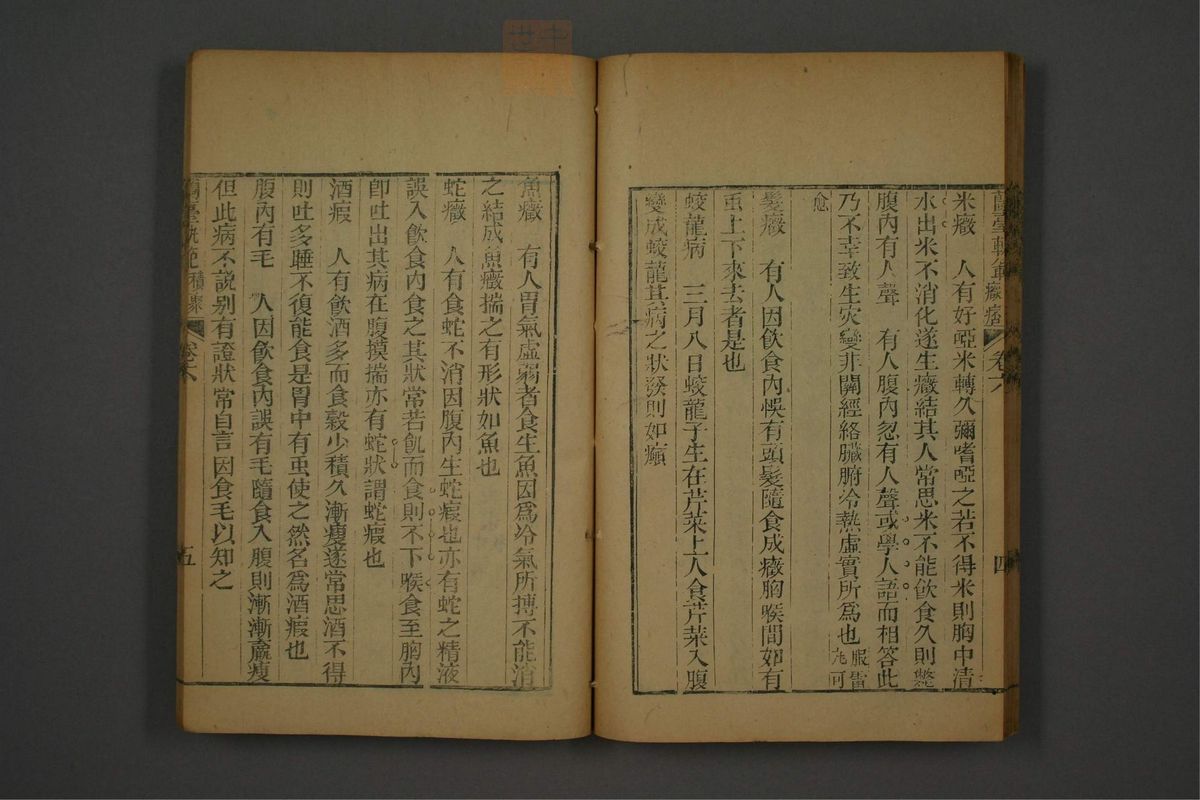 米癥　人有好啞米轉久彌嗜啞之若不得米則胸中清
水出米不消化遂生癥結其人常思米不能飲食久則斃
腹內有人聲　有人腹內忽有人聲或學人語而相答此
乃不幸致生灾變非關經絡臟腑冷熱虛實所爲也服雷
丸可
愈
髮癥　有人因飲食內悞有頭髮隨食成癥胸喉間如有
䖝上下來去者是也
蛟龍病　三月八日蛟龍子生在芹菜上人食芹菜入腹
變成蛟龍其病之狀發則如癲
卷六
四
魚癥　有人胃氣虛弱者食生魚因爲冷氣所搏不能消
之結成魚癥揣之有形狀如魚也
蛇癥　人有食蛇不消因腹內生蛇瘕也亦有蛇之精液
誤入飲食內食之其狀常若飢而食則不下喉食至胸內
卽吐出其病在腹摸揣亦有蛇狀謂蛇瘕也
酒瘕　人有飲酒多而食穀少積久漸瘦遂常思酒不得
則吐多睡不復能食是胃中有䖝使之然名爲酒瘕也
腹內有毛　人因飲食內誤有毛隨食入腹則漸漸羸瘦
但此病不說别有證狀常自言因食毛以知之
卷六
五